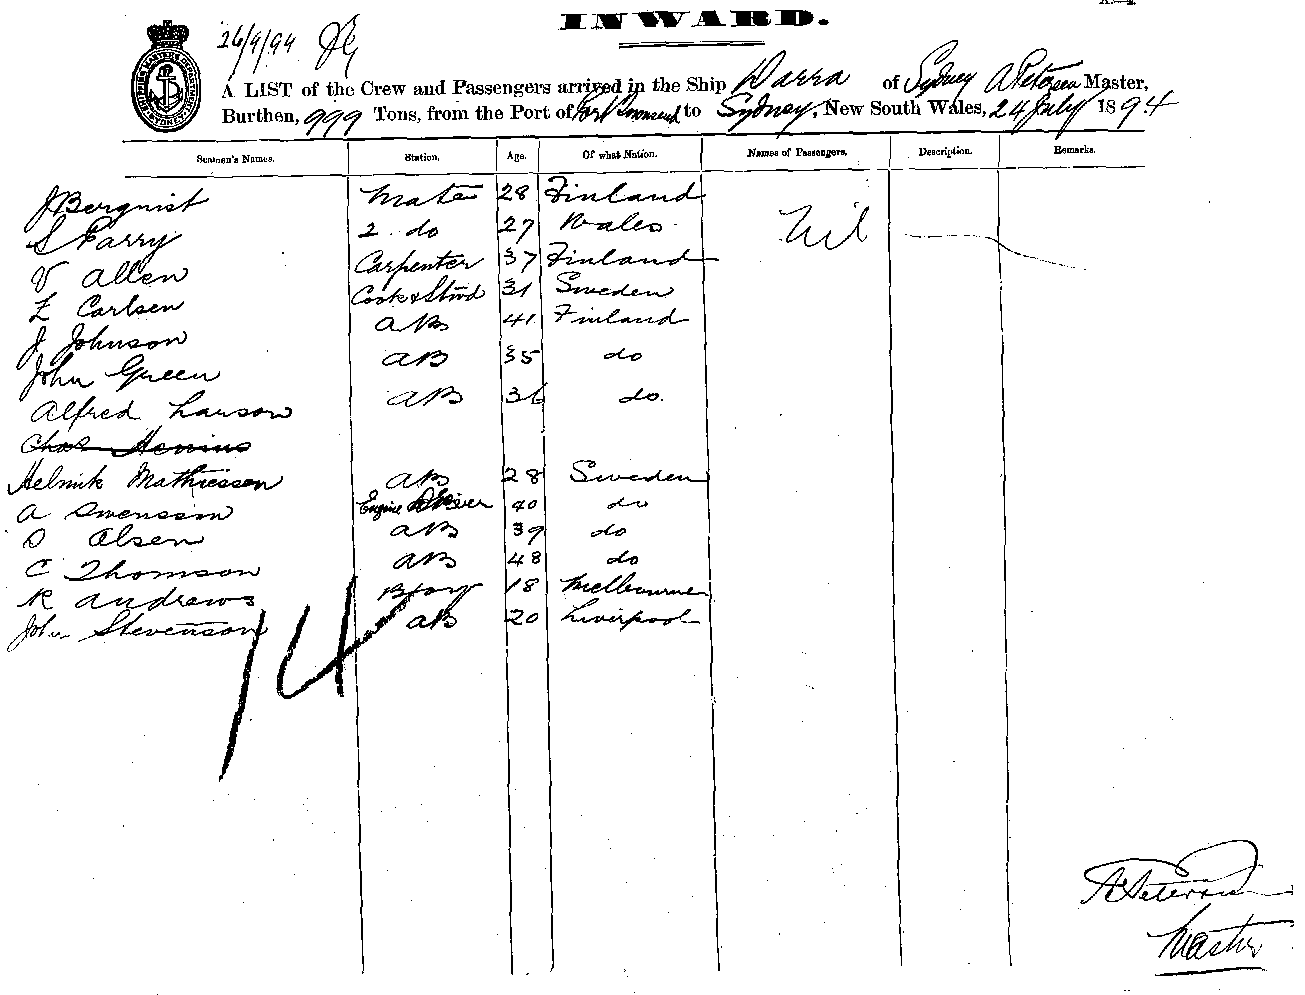 INWARD.
26/9/94
A LIST of the Crew and Passengers arrived in the Ship Warra of Sydney A Petersen Master,
Burthen, 999 Tons, from the Port of Port Townsend to Sydney, New South Wales, 24 July 1894
Seamen's Names. Station. Age. Of what Nation. Names of Passengers. Description. Remarks.
J Bergquist Mate 28 Finland
S Parry 2. do 27 Wales Nil
V Allen Carpenter 37 Finland
L Carlsen Cook & Stwd 31 Sweden
J Johnson AB 41 Finland
John Green AB 35 do
Alfred Larson AB 36 do.
Chas
Helmik Mathiessen AB 28 Sweden
A Swensson Engine Driver 40 do
O Olsen AB 39 do
C Thomson AB 48 do
R Andrews Boy 18 Melbourne
John Stevenson AB 20 Liverpool
14
A Petersen
Master